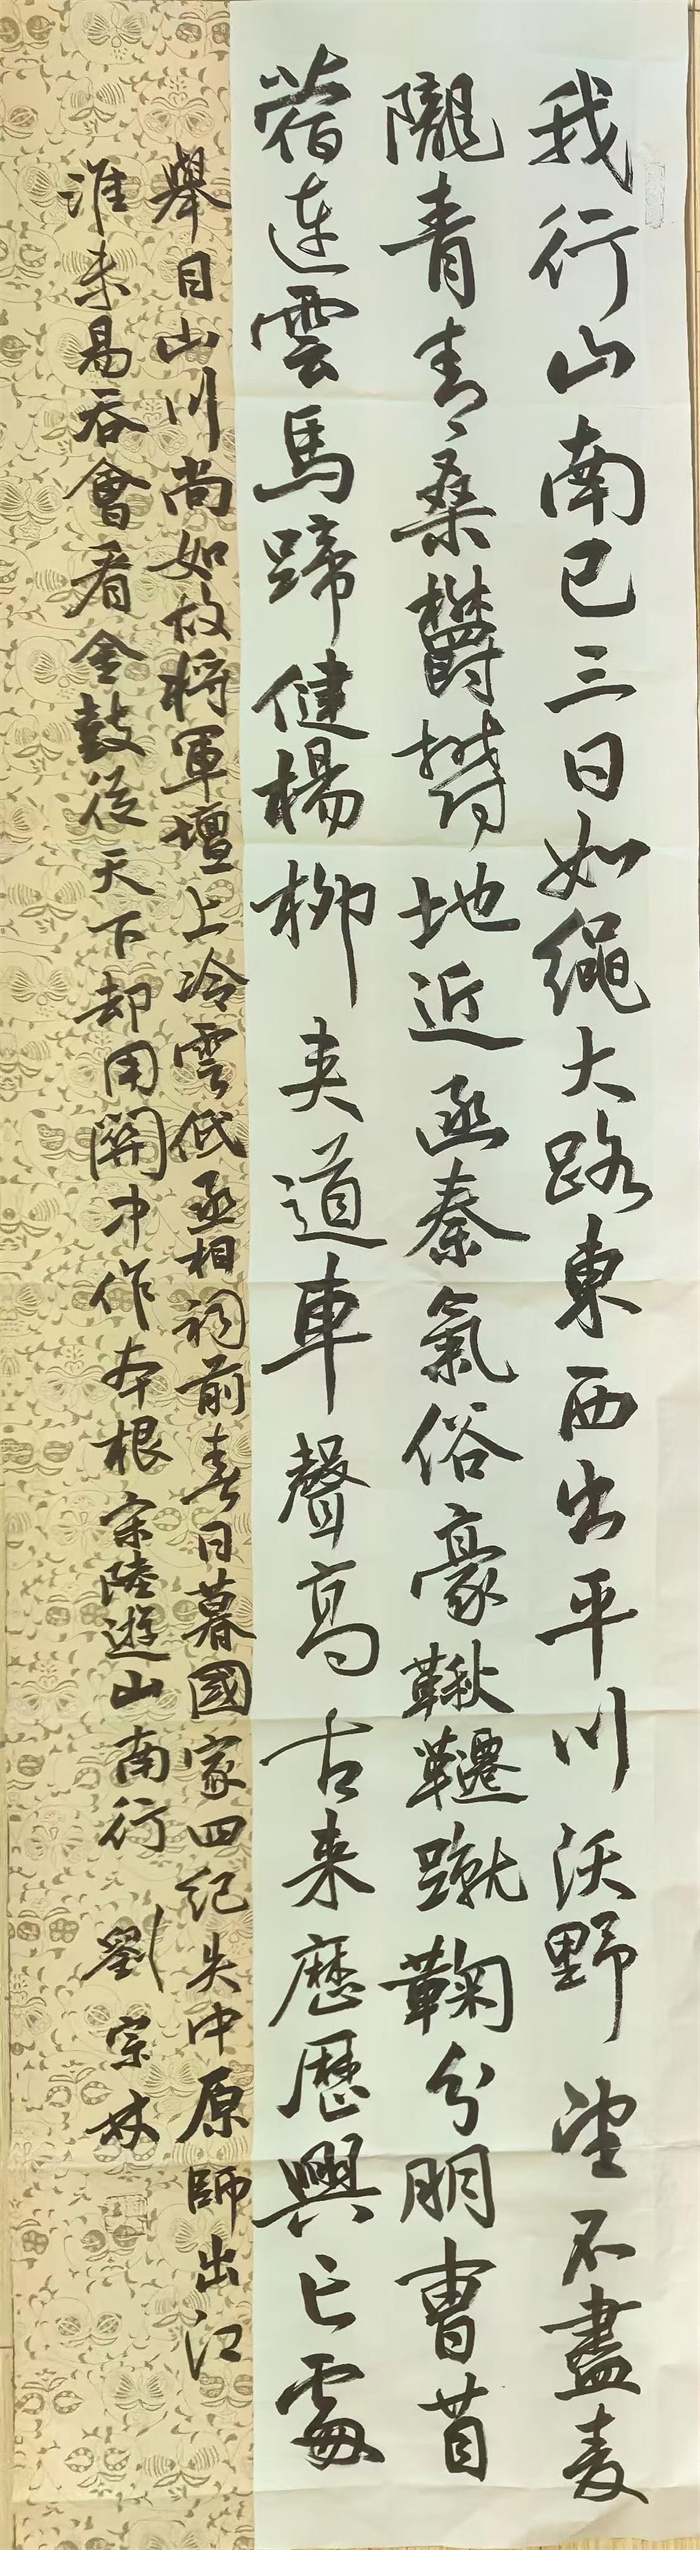 我行山南已三日如繩大路東西出平川沃野望不盡麦
隴青青桑欝欝地近函秦氣俗豪鞦韆蹴鞠分朋曹苜
蓿連雲馬蹄健楊柳夹道車聲高古来歷歷興亡處
舉目山川尚如故将軍壇上冷雲低丞相祠前春日暮國家四纪失中原師出江
淮未易吞會看金鼓從天下却用関中作本根宋陸遊山南行 劉宗林